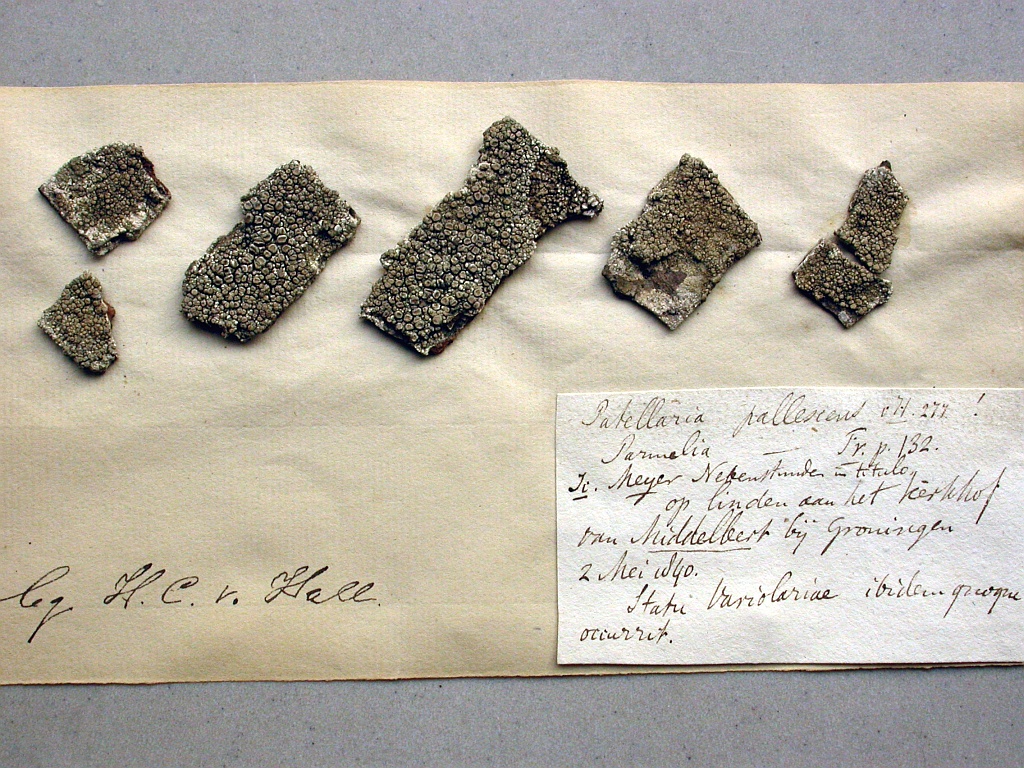 leg H. C. v. Hall.
Patellaria pallescens vH. 277 !
Parmelia — Fr. p. 132.
Ic. Meyer Nebenstunden in titulo,
op linden aan het kerkhof
van Middelbert bij Groningen
2 Mei 1840.
Statu Variolariae ibidem quoque
occurrit.